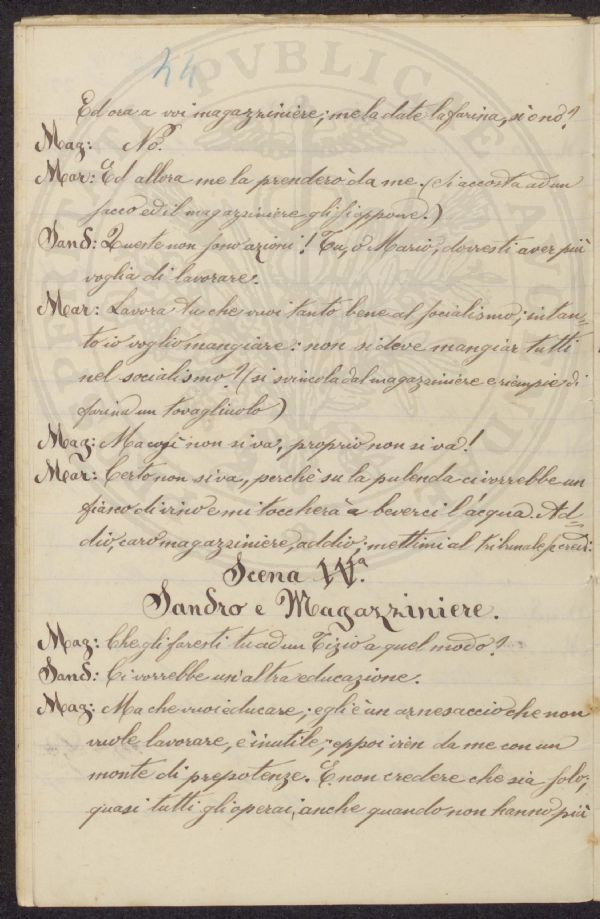 24
Ed ora a voi magazziniere; me la date la farina, sì o nò?
Mag: Nò.
Mar: Ed allora me la prenderò da me. (si accosta ad un
sacco ed il magazziniere gli si oppone.)
Sand: Queste non sono azioni! Tu, o Mario, dovresti aver più
voglia di lavorare.
Mar: Lavora tu che vuoi tanto bene al socialismo; intan=
to io voglio mangiare: non si deve mangiar tutti
nel socialismo? (si svincola dal magazziniere e riempie di
farina un tovagliuolo)
Mag: Ma così non si va, proprio non si va!
Mar: Certo non si va, perchè su la pulenda ci vorrebbe un
fiasco di vino e mi toccherà a beverci l'acqua. Ad=
dio, caro magazziniere, addio; mettimi al tribunale
Scena IV.ª
Sandro e Magazziniere.
Mag: Che gli faresti tu ad un Tizio a quel modo?
Sand: Ci vorrebbe un'altra educazione.
Mag: Ma che vuoi educare; egli è un arnesaccio che non
vuole lavorare, è inutile; eppoi vien da me con un
monte di prepotenze. E non credere che sia solo;
quasi tutti gli operai, anche quando non hanno più